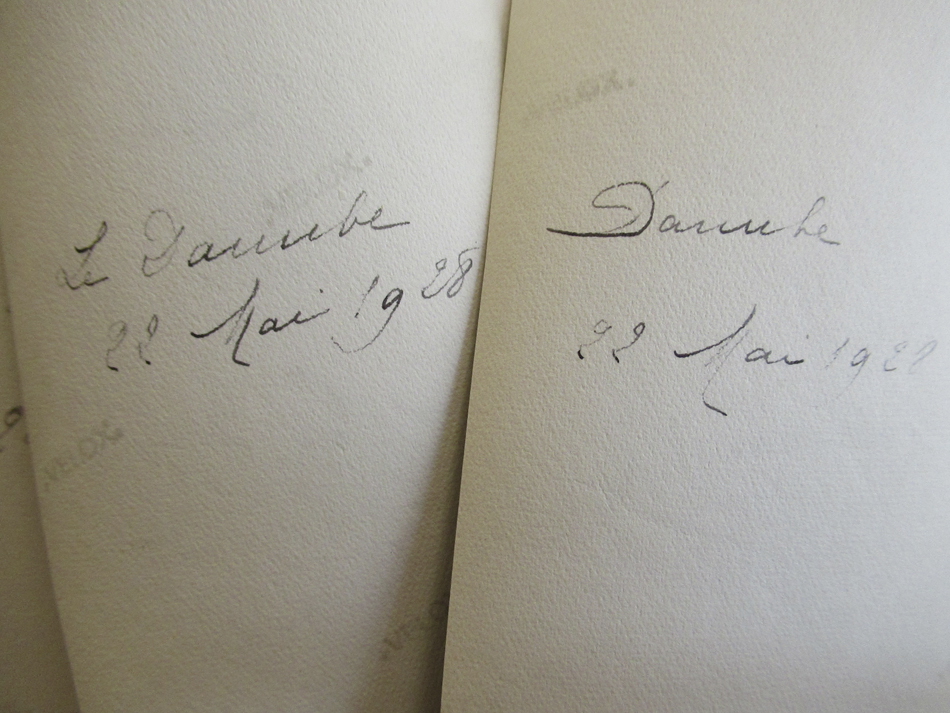 VELOX.
Le Danube
22 Mai 1928
VELOX.
VELO
VELOX.
Danube
22 Mai 1928